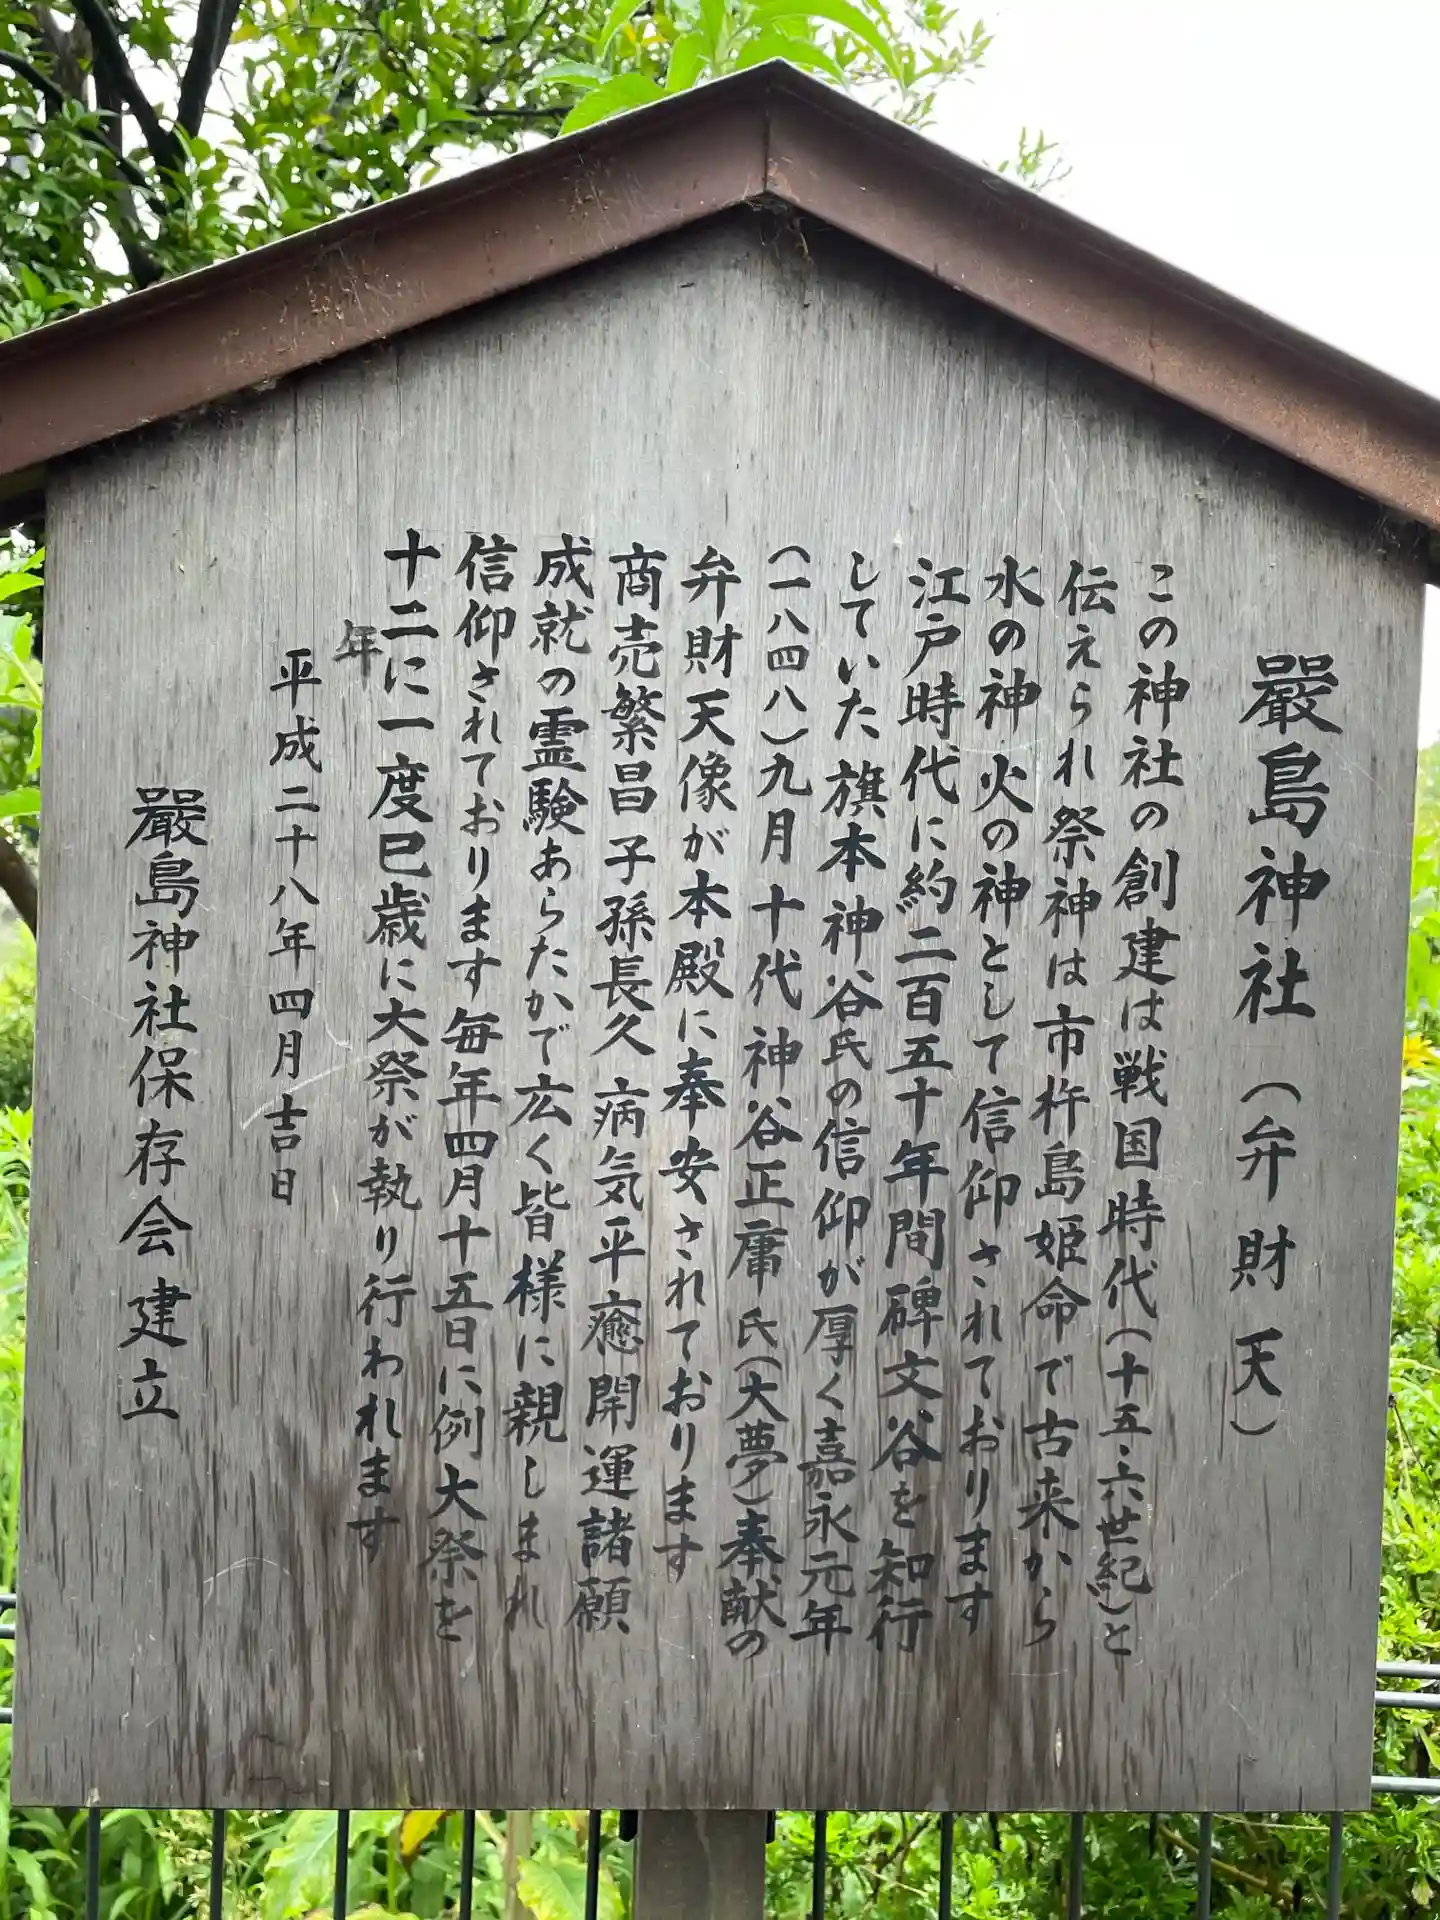 嚴島神社（弁財天）
この神社の創建は戦国時代（十五、六世紀）と
伝えられ祭神は市杵島姫命で古来から
水の神火の神として信仰されております
江戸時代に約二百五十年間碑文谷を知行
していた旗本神谷氏の信仰が厚く嘉永元年
（一八四八）九月十代神谷正庸氏（大夢）奉献の
弁財天像が本殿に奉安されております
商売繁昌子孫長久病気平癒開運諸願
成就の霊験あらたかで広く皆様に親しまれ
信仰されております毎年四月十五日に例大祭を
十二に一度巳歳に大祭が執り行われます
年
平成二十八年四月吉日
嚴島神社保存会建立